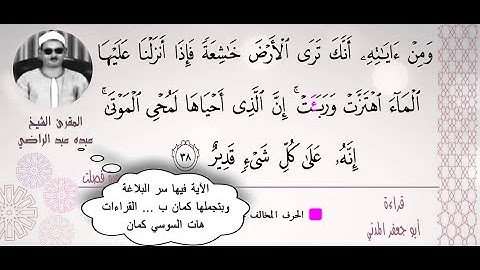 وَمِنْ ءَايَـٰتِهِۦٓ أَنَّكَ تَرَى ٱلْأَرْضَ خَـٰشِعَةً فَإِذَآ أَنزَلْنَا عَلَيْهَا
ٱلْمَآءَ ٱهْتَزَّتْ وَرَبَأَتْ ۚ إِنَّ ٱلَّذِىٓ أَحْيَاهَا لَمُحْىِ ٱلْمَوْتَىٰٓ ۚ
إِنَّهُۥ عَلَىٰ كُلِّ شَىْءٍ قَدِيرٌ ٣٨
المقرئ الشيخ
عبده عبد الراضي
فصلت
الأية فيها سر البلاغة
وبتجملها كمان ب ... القراءات
هات السوسي كمان
الحرف المخالف
قراءة
أبو جعفر المدني